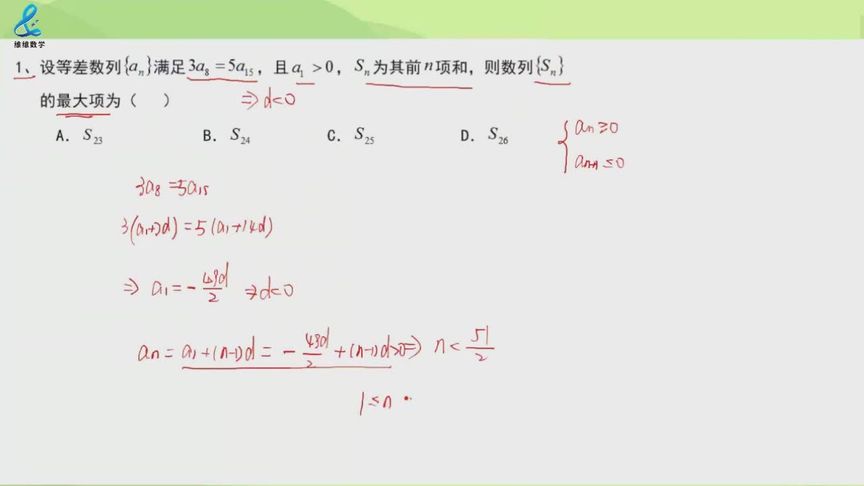 维维数学
1、设等差数列{aₙ}满足3a₈=5a₁₅，且a₁>0，Sₙ为其前n项和，则数列{Sₙ}
的最大项为（ ）
⇒d<0
A. S₂₃ B. S₂₄ C. S₂₅ D. S₂₆
{aₙ≥0
aₙ₊₁≤0
3a₈=5a₁₅
3(a₁+7d)=5(a₁+14d)
⇒ a₁=-49d/2 ⇒d<0
aₙ=a₁+(n-1)d=-49d/2+(n-1)d>0⇒ n<51/2
1≤n